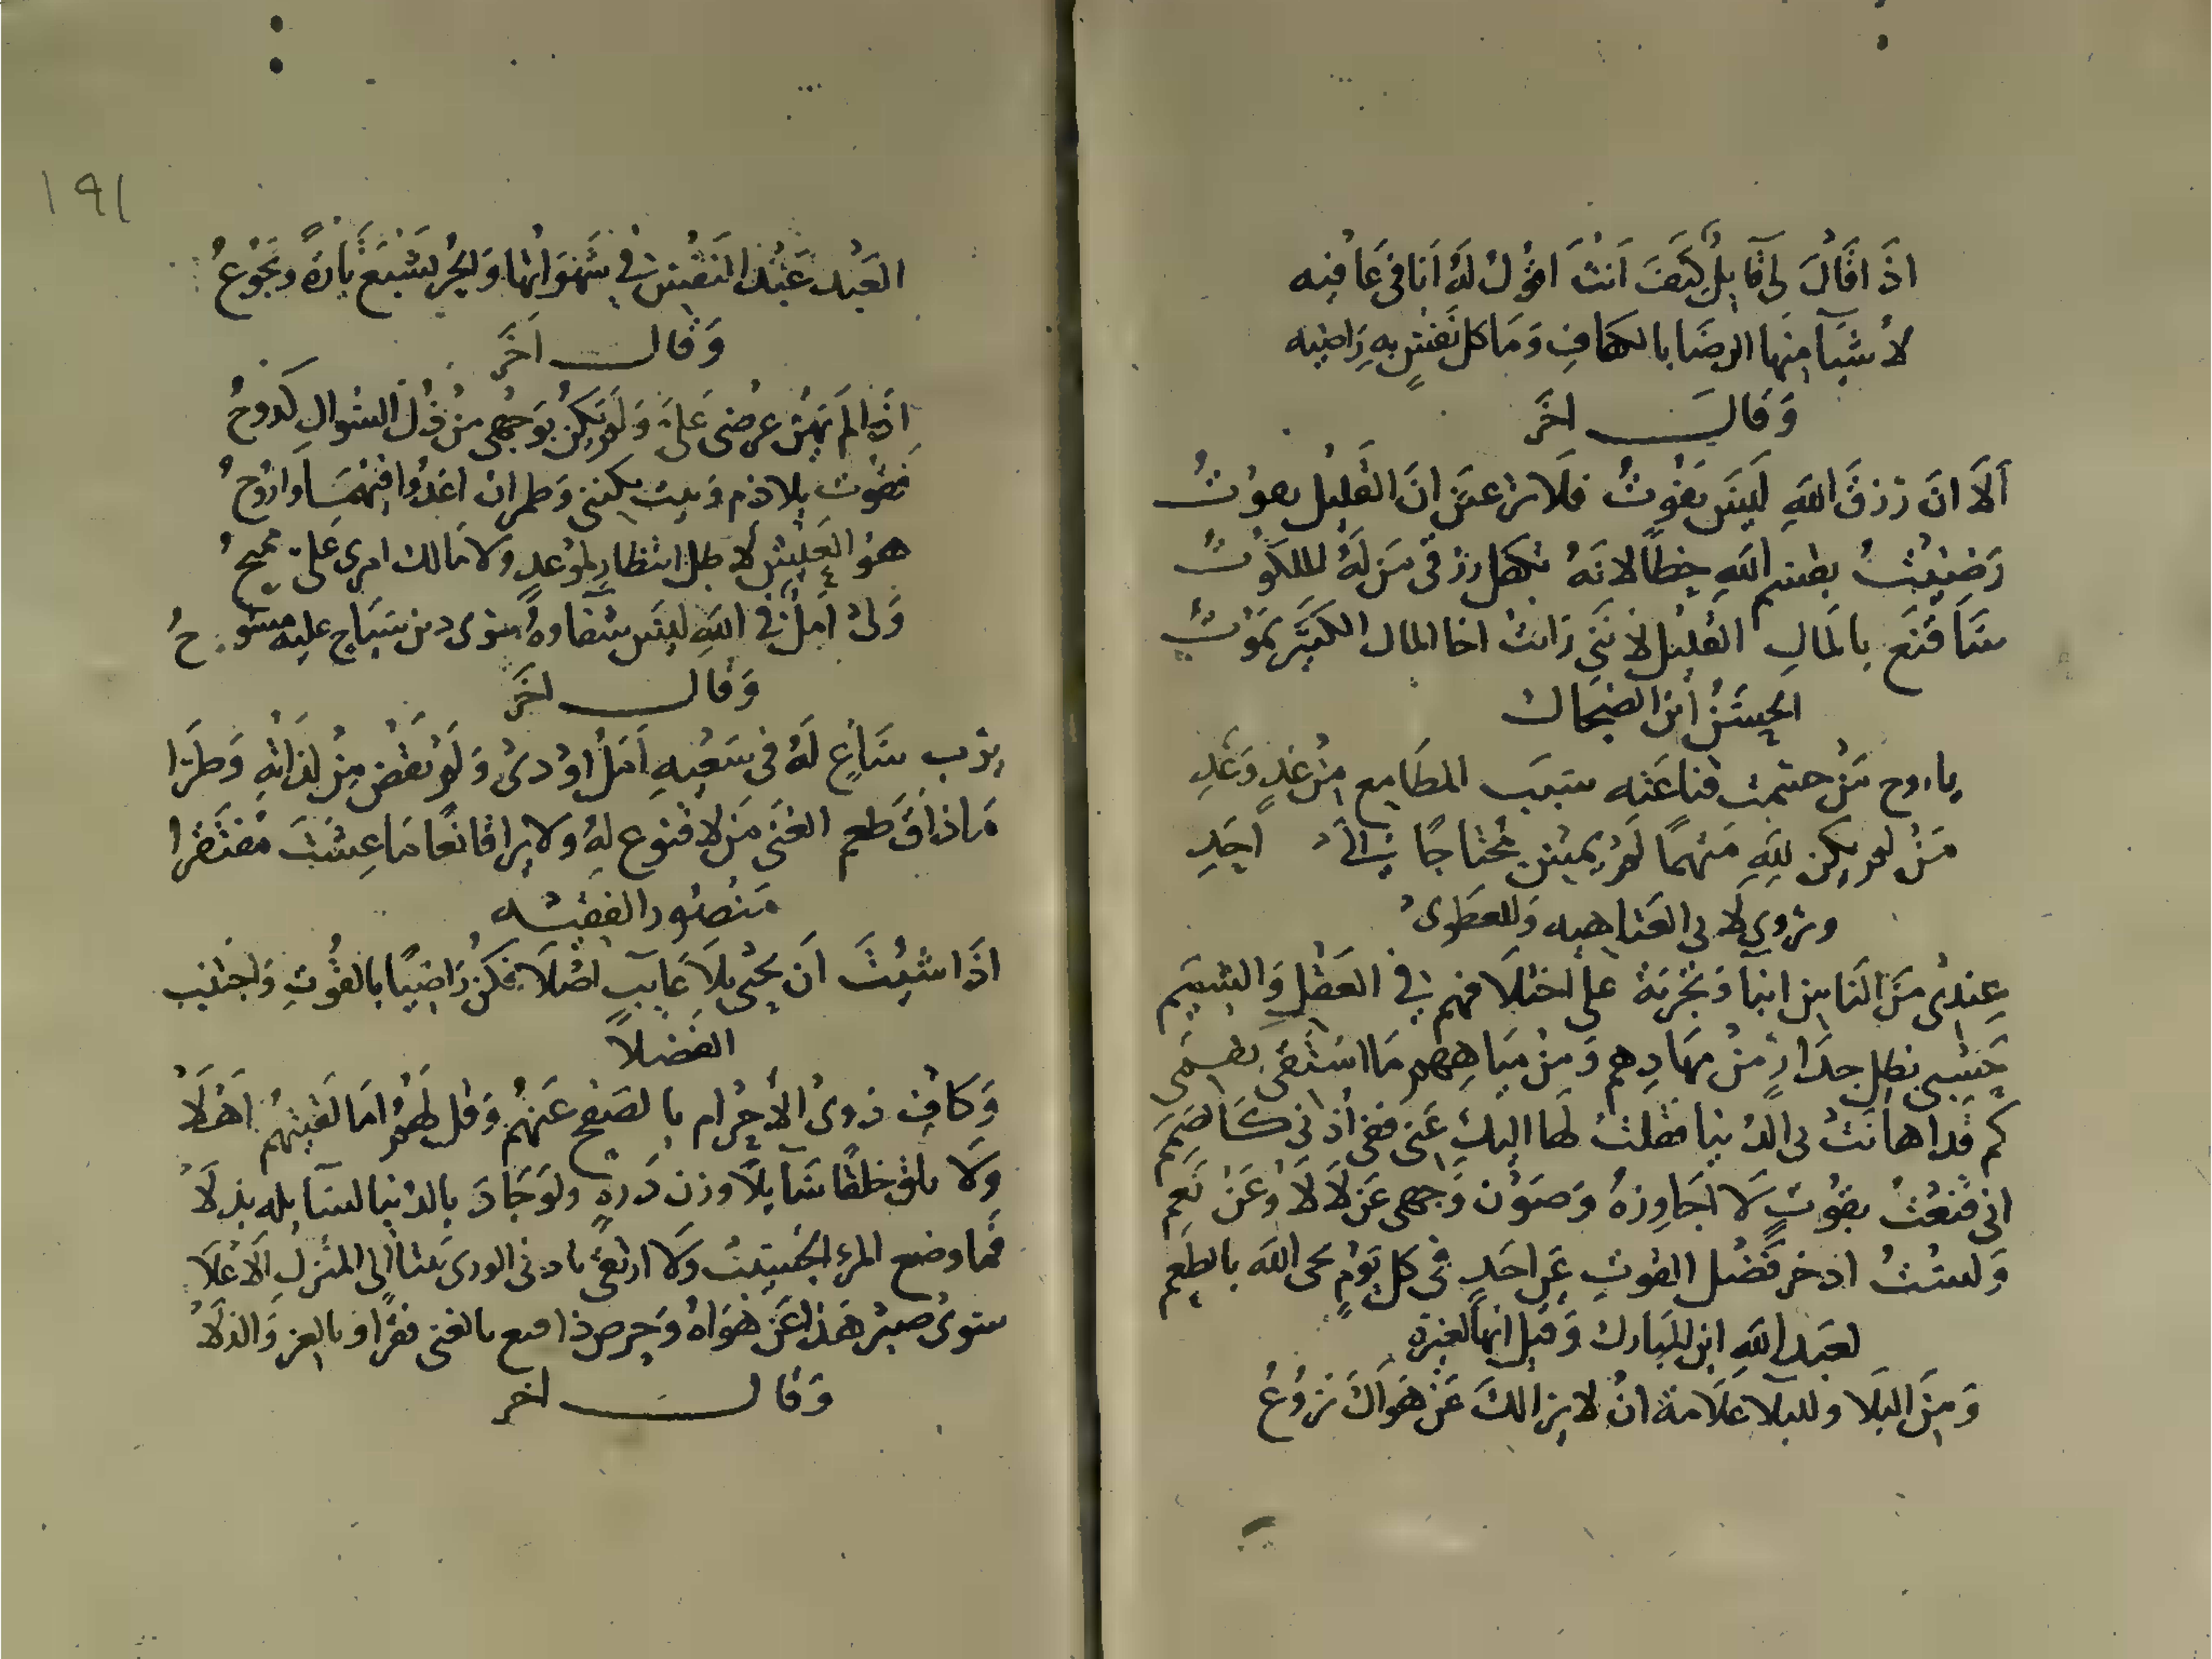 اذا قال لي قايل كيف انت اقول له انا في عافيه
لا شيا منها الرضا بالكفاف وما كل نفس به راضيه
وقال اخر
ألا ان رزق الله ليس يفوت فلا ترعبن ان القليل يقوت
رضيت بقسم الله حظا لانه تكفل رزقي من له الملكوت
ساقنع بالمال القليل لانني رايت اخا المال الكثير يموت
الحسن ابن الضحاك
يا روح من حسمت قناعته سبب المطامع من غد وغد
من لم يكن لله متهما لم يمس محتاجا الى احد
وتروى لابي العتاهيه وللعطوي
عندي من الناس انبا وتجربة على اختلافهم في العقل والشيم
حسبي بظل جدار من مهادهم ومن مياههم ما استقى بفمي
كم قد اهابت بي الدنيا فقلت لها اليك عني ففي اذني كالصمم
اني قنعت بقوت لا اجاوزه وصون وجهي عن لا لا وعن نعم
ولست ادخر فضل القوت عن احد في كل يوم يجي الله بالطعم
لعبد الله ابن المبارك وقيل انها لغيره
ومن البلا وللبلا علامة ان لا يرالك عن هواك نزوع
١٩١
العبد عبد النفس في شهواتها والحر يشبع تارة ويجوع
وقال آخر
اذا لم يهن عرضي علي ولم يكن بوجهي من ذل السوال كدوح
فقوت بلا ذم وبيت يكنني وطمران اغدوا فيهما واروح
هو العيش لا طل انتظار لموعد ولا مالك امري علي شحيح
ولي امل في الله ليس سفاوه سوى من سياج عليه مسوح
وقال اخر
يرب ساع له في سعيه امل اودى ولم يقض من لذاته وطرا
ما ذاق طعم الغنى من لا قنوع له ولا يرا قانعا ما عشت مفتقرا
منصور الفقيه
اذا شيت ان تحيى بلا عايب اصلا فكن راضيا بالقوت واجتنب
الفضلا
وكاف ذوي الأجرام بالصفح عنهم وقل لهم اما لقيتهم اهلا
ولا تلق خلقا سايلا وزن ذرة ولو جاد بالدنيا لسايله بذلا
فما وضع المرء الخسيس ولا ارتقى بادنى الورى بيتا الى المنزل الأعلا
سوى صبر هذا عن هواه وحرص ذا مع بالغنى فقرا وبالعز والذلا
وقال اخر